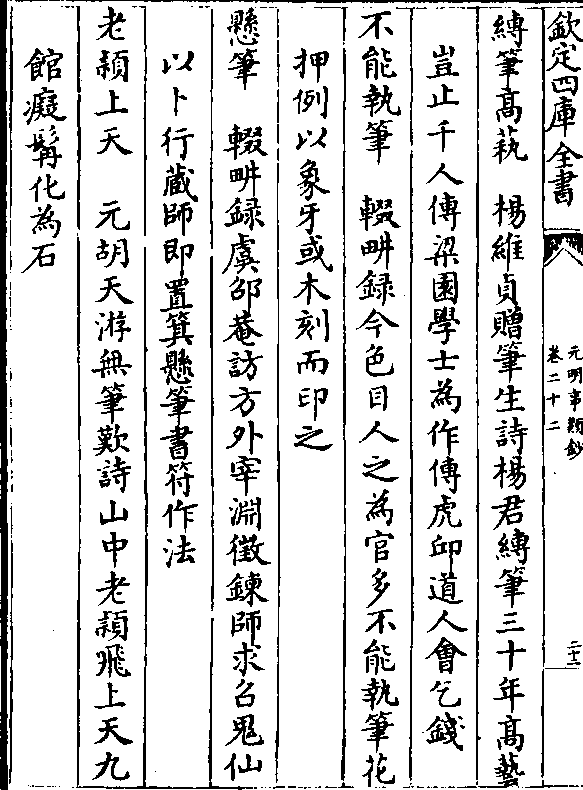 欽定四庫全書
元明事類鈔
卷二十二
二十三
縛筆高蓺　楊維貞贈筆生詩楊君縛筆三十年高藝
豈止千人傳梁園學士為作傳虎邱道人會乞錢
不能執筆　輟畊録今色目人之為官多不能執筆花
押例以象牙或木刻而印之
懸筆　輟畊録虞邵菴訪方外宰淵微鍊師求召鬼仙
以卜行藏師即置箕懸筆書符作法
老頴上天　元胡天游無筆歎詩山中老頴飛上天九
館癡髯化為石